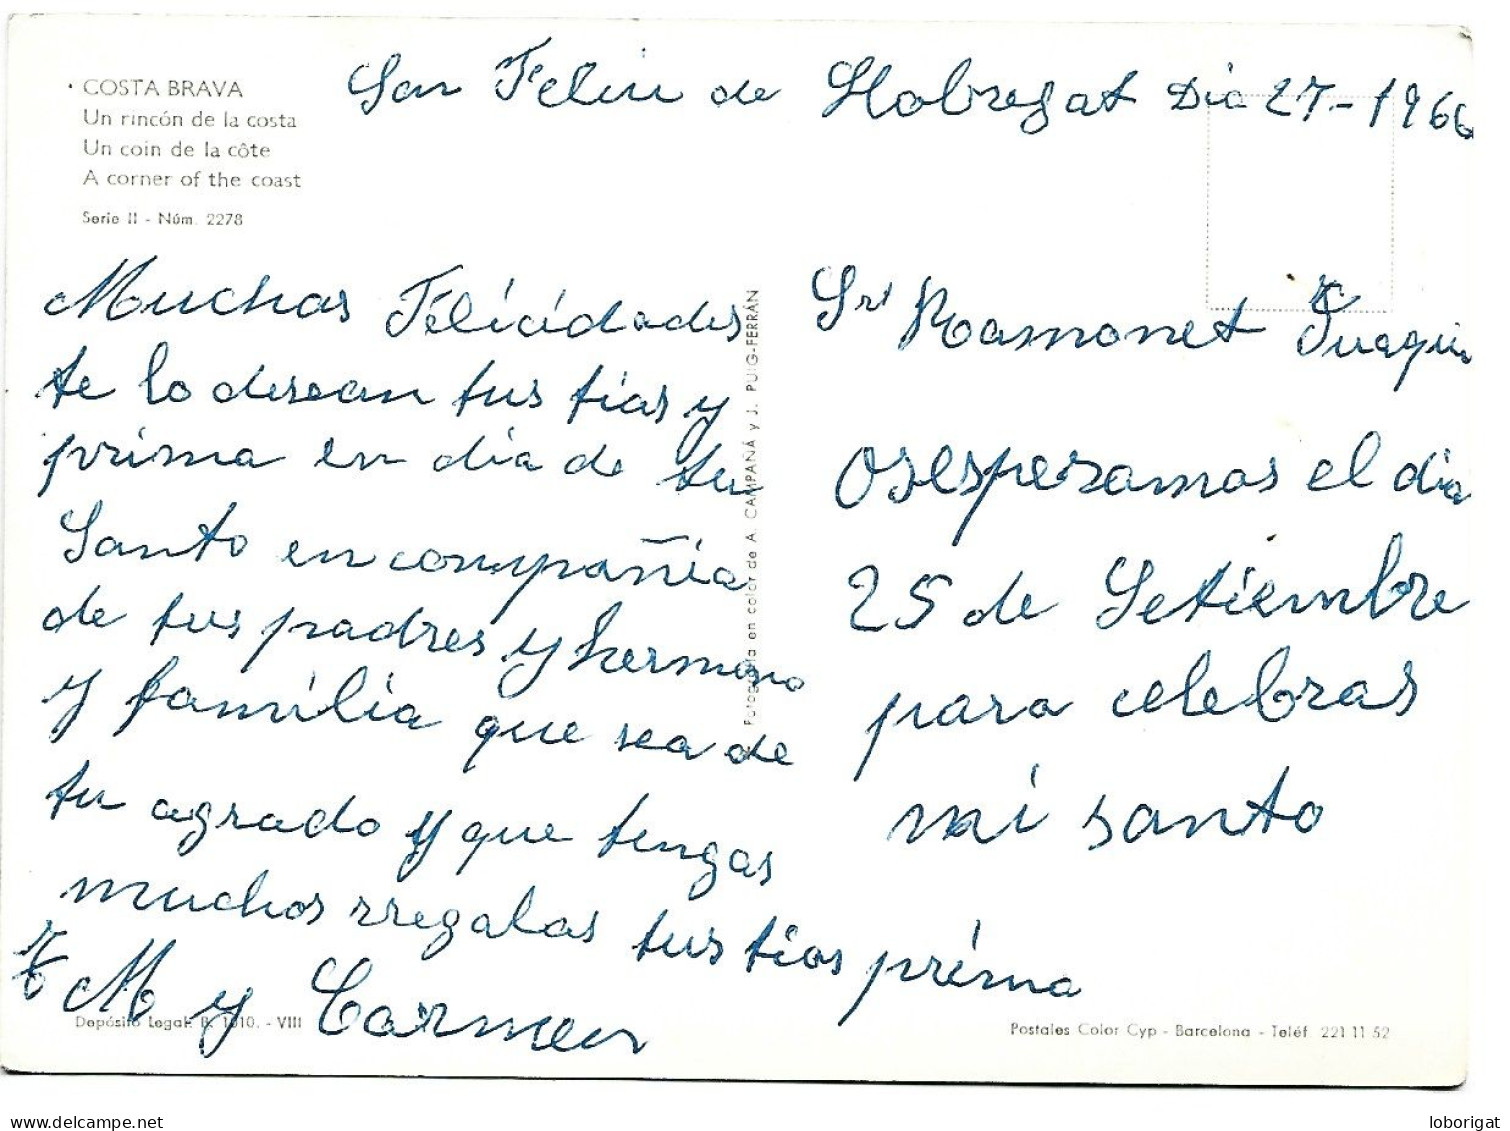 San Feliu de Llobregat Dia 27-1966
COSTA BRAVA
Un rincón de la costa
Un coin de la côte
A corner of the coast
Serie II - Núm. 2278
Muchas Felicidades
te lo desean tus tias y
prima en dia de tu
Santo en compañia
de tus padres y hermano
y familia que sea de
tu agrado y que tengas
muchos rregalas tus tias préma
M y Carmen
Fotografía en color de A. CAMPAÑÁ y J. PUIG-FERRÁN
Sr Ramonet Juaquin
os esperamos el dia
25 de Setiembre
para celebras
mi santo
Depósito Legal: B. 1010. - VIII
Postales Color Cyp - Barcelona - Teléf. 221 11 52
loborigat